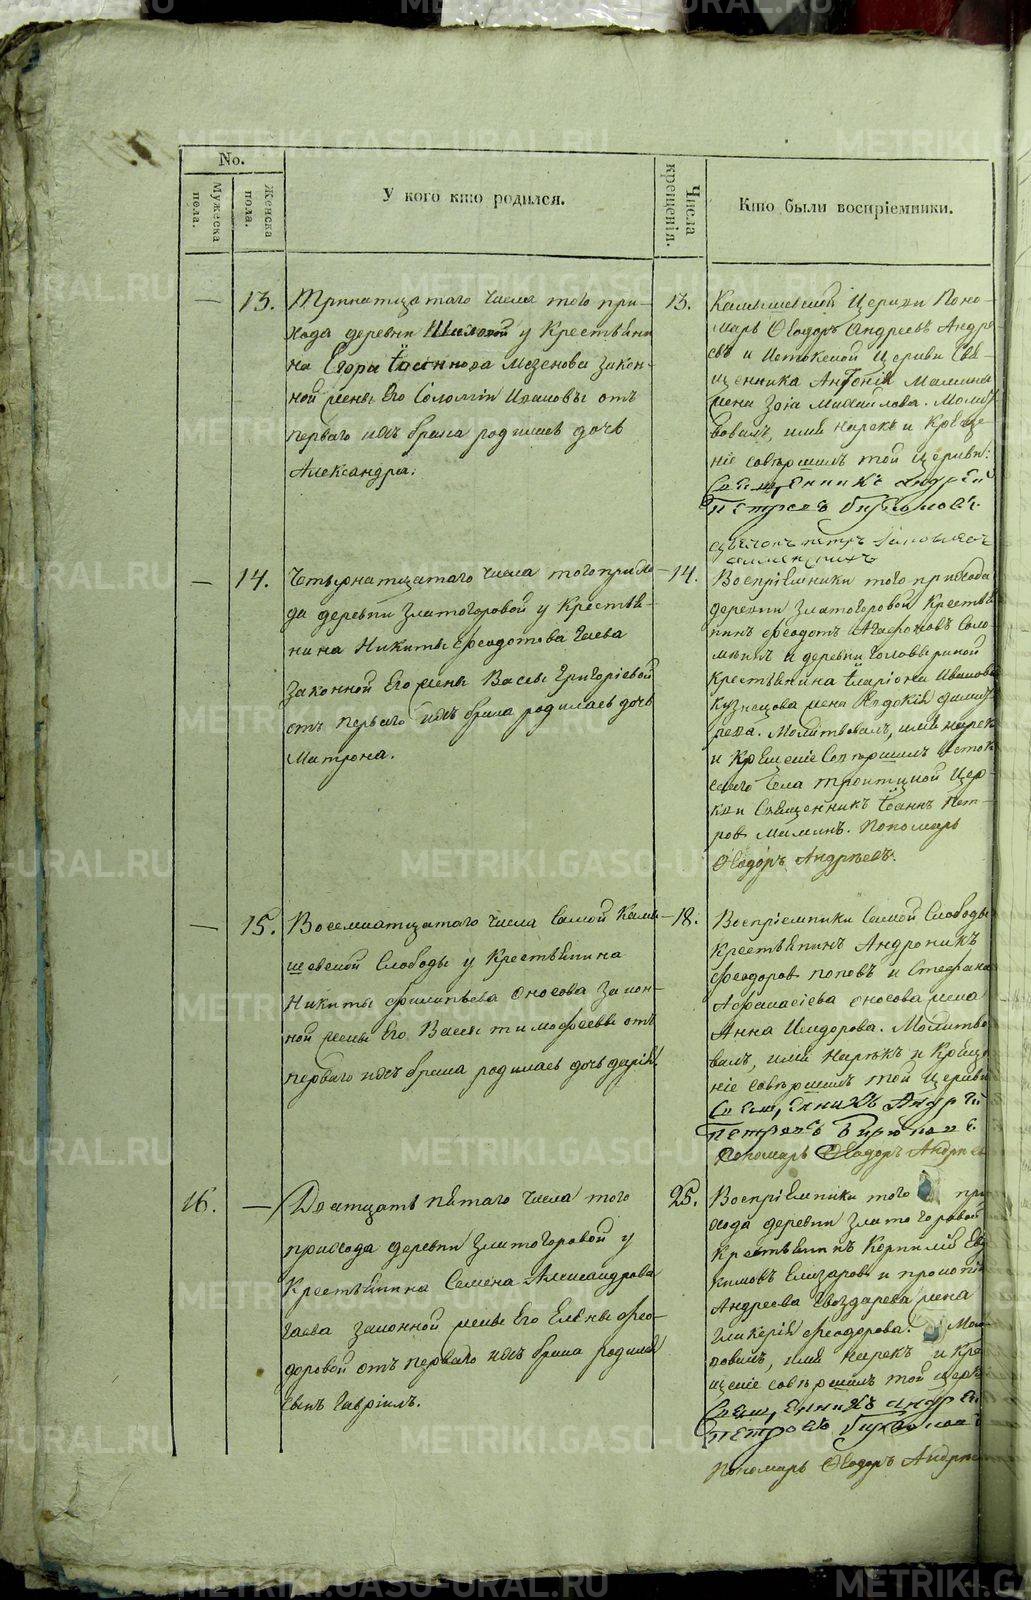 No.
Мужеска пола.
Женска пола.
У кого кто родился.
Числа крещенія.
Кто были воспріемники.
13.
Тринатцатаго числа того при-
хода деревни Шиловой у Крестьяни
на Егора Мезенова закон-
ной жены Его Соломіи Ивановы отъ
перваго ихъ брака родилась дочь
Александра.
13.
Камышевской Церкви Поно-
марь Ѳеодоръ Андреевъ Андре
евъ и Истокской Церкви Свя-
щенника Антонія Мамина
жена Зоіа Михайлова. Молит
вовалъ, имя нарекъ и Креще-
ніе совершилъ той церкви:
Священникъ Андрей
Петровъ Бирюковъ.
14.
Четырнатцатаго числа того прихо
да деревни Златогоровой у Крестья-
нина Никиты Ѳеодотова Гаева
законной Его жены Вассы Григоріевой
отъ перваго ихъ брака родилась дочь
Матрона.
14.
Воспріемники того прихода
деревни Златогоровой Крестья
нинъ Ѳеодотъ Агафоновъ Соло-
мкинъ и деревни Головыриной
крестьянина Иларіона Иванова
Кузнецова жена Евдокія
Молитвовалъ, имя нарек
и Крещеніе Совершилъ Исток
скаго Села Троитцкой Цер-
кви Священникъ Іоаннъ Пет-
ровъ Маминъ. Пономарь
Ѳеодоръ Андреевъ.
15.
Восемнатцатаго числа самой Камы
шевской Слободы у Крестьянина
Никиты Филипьева Оносова закон-
ной жены Его Вассы Тимофеевы отъ
перваго ихъ брака родилась дочь Дарія.
18.
Воспріемники самой Слободы
Крестьянинъ Андроникъ
Ѳеодоровъ Поповъ и Стефана
Афанасіева Оносова жена
Анна Исидорова. Молитво
валъ, имя Нарекъ и Креще
ніе совершилъ той Церкви
Священникъ Андрей
Петровъ Бирюковъ
Пономарь Ѳеодоръ Андреев
16.
Дватцать пятаго числа того
прихода деревни Златогоровой у
Крестьянина Семена Александрова
Гаева законной жены Его Елены Ѳео-
доровой отъ перваго ихъ брака родился
сынъ Гавріилъ.
25.
Воспріемники того при
хода деревни Златогоровой
Крестьянинъ Корнилій Ев
кимовъ Елизаровъ и Прокопія
Андреева Гвоздарева жена
Гликерія Ѳеодорова. Мол
вовалъ, имя нарекъ и Кре
щеніе совершилъ той церкв
Священникъ Андрей
Петровъ Бирюковъ
Пономарь Ѳеодоръ Андреев
METRIKI.GASO-URAL.RU